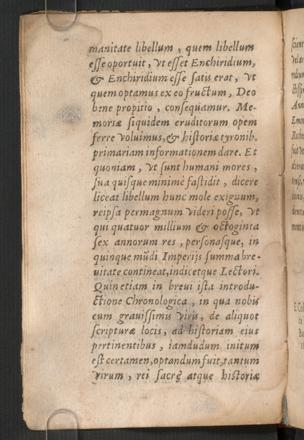 manitate libellum, quem libellum
eſſe oportuit, vt eſſet Enchiridium,
& Enchiridium eſſe ſatis erat, vt
quem optamus ex eo fructum, Deo
bene propitio, conſequamur. Me-
moriæ ſiquidem eruditorum opem
ferre voluimus, & hiſtoriæ tyronib.
primariam informationem dare. Et
quoniam, vt ſunt humani mores,
ſua quiſque minimè faſtidit, dicere
liceat libellum hunc mole exiguum,
reipſa permagnum videri poſſe, vt
qui quatuor millium & octoginta
ſex annorum res, perſonaſque, in
quinque mūdi Imperijs ſumma bre-
uitate contineat, indicetque Lectori.
Quinetiam in breui iſta introdu-
ctione Chronologica, in qua nobis
cum grauiſsimis viris, de aliquot
ſcripturæ locis, ad hiſtoriam eius
pertinentibus, iamdudum initum
eſt certamen, optandum fuit, tantum
virum, rei ſacrę atque hiſtoriæ